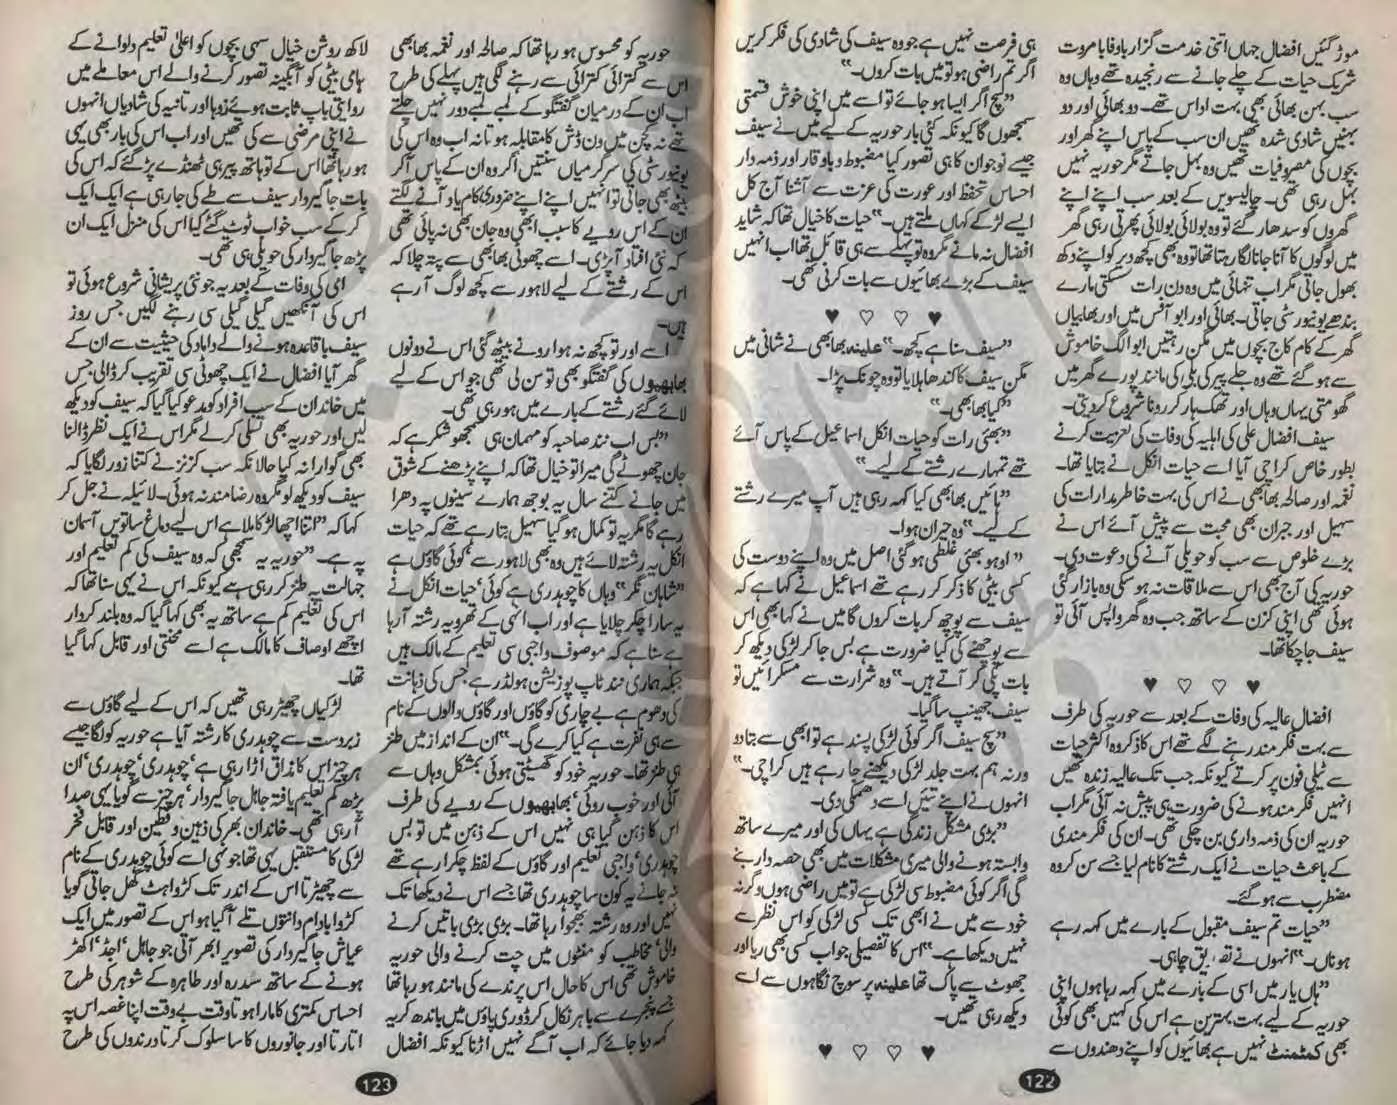 موڑ گئیں افضال جہاں اتنی خدمت گزار باوفا بامروت
شریک حیات کے چلے جانے سے رنجیدہ تھے وہاں وہ
سب بہن بھائی بھی بہت اداس تھے۔ دو بھائی اور دو
بہنیں شادی شدہ تھیں ان سب کے پاس اپنے گھر اور
بچوں کی مصروفیات تھیں وہ بہل جاتے مگر حوریہ نہیں
بہل رہی تھی۔ چالیسویں کے بعد سب اپنے اپنے
گھروں کو سدھار گئے تو وہ بولائی بولائی پھرتی رہی گھر
میں لوگوں کا آنا جانا لگا رہتا تھا تو وہ بھی کچھ دیر کو اپنے دکھ
بھول جاتی مگر اب تنہائی میں وہ دن رات سسکتی مارے
بندھے یونیورسٹی جاتی۔ بھائی اور ابو آفس میں اور بھابیاں
گھر کے کام کاج بچوں میں مگن رہتیں ابو الگ خاموش
سے ہو گئے تھے وہ جلے پیر کی بلی کی مانند پورے گھر میں
گھومتی یہاں وہاں اور تھک ہار کر رونا شروع کر دیتی۔
سیف افضال علی کی اہلیہ کی وفات کی تعزیت کرنے
بطور خاص کراچی آیا اسے حیات انکل نے بتایا تھا۔
نغمہ اور صالحہ بھابھی نے اس کی بہت خاطر مدارات کی
سہیل اور جبران بھی محبت سے پیش آئے اس نے
بڑے خلوص سے سب کو حویلی آنے کی دعوت دی۔
حوریہ کی آج بھی اس سے ملاقات نہ ہو سکی وہ بازار گئی
ہوئی تھی اپنی کزن کے ساتھ جب وہ گھر واپس آئی تو
سیف جا چکا تھا۔
♥ ♡ ♡ ♥
افضال عالیہ کی وفات کے بعد سے حوریہ کی طرف
سے بہت فکر مند رہنے لگے تھے اس کا ذکر وہ اکثر حیات
سے ٹیلی فون پر کرتے کیونکہ جب تک عالیہ زندہ تھیں
انہیں فکر مند ہونے کی ضرورت ہی پیش نہ آئی مگر اب
حوریہ ان کی ذمہ داری بن چکی تھی۔ ان کی فکر مندی
کے باعث حیات نے ایک رشتے کا نام لیا جسے سن کر وہ
مضطرب سے ہو گئے۔
”حیات تم سیف مقبول کے بارے میں کہہ رہے
ہو ناں۔“ انہوں نے تصدیق چاہی۔
”ہاں یار میں اسی کے بارے میں کہہ رہا ہوں اپنی
حوریہ کے لیے بہت بہترین ہے اس کی کہیں بھی کوئی
بھی کمٹمنٹ نہیں ہے بھائیوں کو اپنے دھندوں سے
ہی فرصت نہیں ہے جو وہ سیف کی شادی کی فکر کریں
اگر تم راضی ہو تو میں بات کروں۔“
”سچ اگر ایسا ہو جائے تو اسے میں اپنی خوش قسمتی
سمجھوں گا کیونکہ کئی بار حوریہ کے لیے میں نے سیف
جیسے نوجوان کا ہی تصور کیا مضبوط و باوقار اور ذمہ دار
احساس تحفظ اور عورت کی عزت سے آشنا آج کل
ایسے لڑکے کہاں ملتے ہیں۔“ حیات کا خیال تھا کہ شاید
افضال نہ مانے مگر وہ تو پہلے سے ہی قائل تھا اب انہیں
سیف کے بڑے بھائیوں سے بات کرنی تھی۔
♥ ♡ ♡ ♥
”سیف سنا ہے کچھ۔“ علینہ بھابھی نے شانی میں
مگن سیف کا کندھا ہلایا تو وہ چونک پڑا۔
”کیا بھابھی۔“
”بھئی رات کو حیات انکل اسماعیل کے پاس آئے
تھے تمہارے رشتے کے لیے۔“
”ہائیں بھابھی کیا کہہ رہی ہیں آپ میرے رشتے
کے لیے۔“ وہ حیران ہوا۔
”اوہو بھئی غلطی ہو گئی اصل میں وہ اپنے دوست کی
کسی بیٹی کا ذکر کر رہے تھے اسماعیل نے کہا ہے کہ
سیف سے پوچھ کر بات کروں گا میں نے کہا بھی اس
سے پوچھنے کی کیا ضرورت ہے بس جا کر لڑکی دیکھ کر
بات پکی کر آتے ہیں۔“ وہ شرارت سے مسکرائیں تو
سیف جھینپ سا گیا۔
”سچ سیف اگر کوئی لڑکی پسند ہے تو ابھی سے بتا دو
ورنہ ہم بہت جلد لڑکی دیکھنے جا رہے ہیں کراچی۔“
انہوں نے اپنے تئیں اسے دھمکی دی۔
”بڑی مشکل زندگی ہے یہاں کی اور میرے ساتھ
وابستہ ہونے والی میری مشکلات میں بھی حصہ دار بنے
گی اگر کوئی مضبوط سی لڑکی ہے تو میں راضی ہوں وگرنہ
خود سے میں نے ابھی تک کسی لڑکی کو اس نظر سے
نہیں دیکھا ہے۔“ اس کا تفصیلی جواب کسی بھی ریا اور
جھوٹ سے پاک تھا علینہ پر سوچ نگاہوں سے اسے
دیکھ رہی تھیں۔
♥ ♡ ♡ ♥
122
حوریہ کو محسوس ہو رہا تھا کہ صالحہ اور نغمہ بھابھی
اس سے کترائی کترائی سے رہنے لگی ہیں پہلے کی طرح
اب ان کے درمیان گفتگو کے لمبے لمبے دور نہیں چلتے
تھے نہ کچن میں ون ڈش کا مقابلہ ہوتا نہ اب وہ اس کی
یونیورسٹی کی سرگرمیاں سنتیں اگر وہ ان کے پاس آ کر
بیٹھ بھی جاتی تو انہیں اپنے اپنے ضروری کام یاد آنے لگتے
ان کے اس رویے کا سبب ابھی وہ جان بھی نہ پائی تھی
کہ نئی افتاد آ پڑی۔ اسے چھوٹی بھابھی سے پتہ چلا کہ
اس کے رشتے کے لیے لاہور سے کچھ لوگ آ رہے
ہیں۔
اسے اور تو کچھ نہ ہوا رونے بیٹھ گئی اس نے دونوں
بھابھیوں کی گفتگو بھی تو سن لی تھی جو اس کے لیے
لائے گئے رشتے کے بارے میں ہو رہی تھی۔
”بس اب نند صاحبہ کو مہمان ہی سمجھو شکر ہے کہ
جان چھوٹے گی میرا تو خیال تھا کہ اپنے پڑھنے کے شوق
میں جانے کتنے سال یہ بوجھ ہمارے سینوں پہ دھرا
رہے گا مگر یہ تو کمال ہو گیا سہیل بتا رہے تھے کہ حیات
انکل یہ رشتہ لائے ہیں وہ بھی لاہور سے ’کوئی گاؤں ہے
”شاہان نگر“ وہاں کا چوہدری ہے کوئی‘ حیات انکل نے
یہ سارا چکر چلایا ہے اور اب انہی کے تھرو یہ رشتہ آ رہا
ہے سنا ہے کہ موصوف واجبی سی تعلیم کے مالک ہیں
جبکہ ہماری نند ٹاپ پوزیشن ہولڈر ہے جس کی ذہانت
کی دھوم ہے بے چاری کو گاؤں اور گاؤں والوں کے نام
سے ہی نفرت ہے کیا کرے گی۔“ ان کے انداز میں طنز
ہی طنز تھا۔ حوریہ خود کو گھسیٹتی ہوئی بمشکل وہاں سے
آئی اور خوب روئی‘ بھابھیوں کے رویے کی طرف
اس کا ذہن گیا ہی نہیں اس کے ذہن میں تو بس
چوہدری‘ واجبی تعلیم اور گاؤں کے لفظ چکرا رہے تھے
نہ جانے یہ کون سا چوہدری تھا جسے اس نے دیکھا تک
نہیں اور وہ رشتہ بھجوا رہا تھا۔ بڑی بڑی باتیں کرنے
والی‘ مخاطب کو منٹوں میں چت کرنے والی حوریہ
خاموش تھی اس کا حال اس پرندے کی مانند ہو رہا تھا
جسے پنجرے سے باہر نکال کر ڈوری پاؤں میں باندھ کر یہ
کہہ دیا جائے کہ اب آگے نہیں اڑنا کیونکہ افضال
لاکھ روشن خیال سہی بچوں کو اعلیٰ تعلیم دلوانے کے
ہامی بیٹی کو آبگینہ تصور کرنے والے اس معاملے میں
روایتی باپ ثابت ہوئے زوہا اور تانیہ کی شادیاں انہوں
نے اپنی مرضی سے کی تھیں اور اب اس کی بار بھی یہی
ہو رہا تھا اس کے تو ہاتھ پیر ہی ٹھنڈے پڑ گئے کہ اس کی
بات جاگیردار سیف سے طے کی جا رہی ہے ایک ایک
کر کے سب خواب ٹوٹ گئے کیا اس کی منزل ایک ان
پڑھ جاگیردار کی حویلی ہی تھی۔
امی کی وفات کے بعد یہ جو نئی پریشانی شروع ہوئی تو
اس کی آنکھیں گیلی گیلی سی رہنے لگیں جس روز
سیف باقاعدہ ہونے والے داماد کی حیثیت سے ان کے
گھر آیا افضال نے ایک چھوٹی سی تقریب کر ڈالی جس
میں خاندان کے سب افراد کو مدعو کیا گیا کہ سیف کو دیکھ
لیں اور حوریہ بھی تسلی کر لے مگر اس نے ایک نظر ڈالنا
بھی گوارا نہ کیا حالانکہ سب کزنز نے کتنا زور لگایا کہ
سیف کو دیکھ لو مگر وہ رضامند نہ ہوئی۔ لائیلہ نے جل کر
کہا کہ ”اتنا اچھا لڑکا ملا ہے اس لیے دماغ ساتویں آسمان
پہ ہے۔“ حوریہ یہ سمجھی کہ وہ سیف کی کم تعلیم اور
جہالت پہ طنز کر رہی ہے کیونکہ اس نے یہی سنا تھا کہ
اس کی تعلیم کم ہے ساتھ یہ بھی کہا گیا کہ وہ بلند کردار
اچھے اوصاف کا مالک ہے اسے محنتی اور قابل کہا گیا
تھا۔
لڑکیاں چھیڑ رہی تھیں کہ اس کے لیے گاؤں سے
زبردست سے چوہدری کا رشتہ آیا ہے حوریہ کو لگا جیسے
ہر چیز اس کا مذاق اڑا رہی ہے ’چوہدری‘ چوہدری‘ ان
پڑھ کم تعلیم یافتہ جاہل جاگیردار‘ ہر چیز سے گویا یہی صدا
آ رہی تھی۔ خاندان بھر کی ذہین و فطین اور قابل فخر
لڑکی کا مستقبل یہی تھا جونہی اسے کوئی چوہدری کے نام
سے چھیڑتا اس کے اندر تک کڑواہٹ گھل جاتی گویا
کڑوا بادام دانتوں تلے آ گیا ہو اس کے تصور میں ایک
عیاش جاگیردار کی تصویر ابھر آتی جو جاہل‘ اجڈ‘ اکھڑ
ہونے کے ساتھ سدرہ اور طاہرہ کے شوہر کی طرح
احساس کمتری کا مارا ہوتا وقت بے وقت اپنا غصہ اس پہ
اتارتا اور جانوروں کا سا سلوک کرتا درندوں کی طرح
123